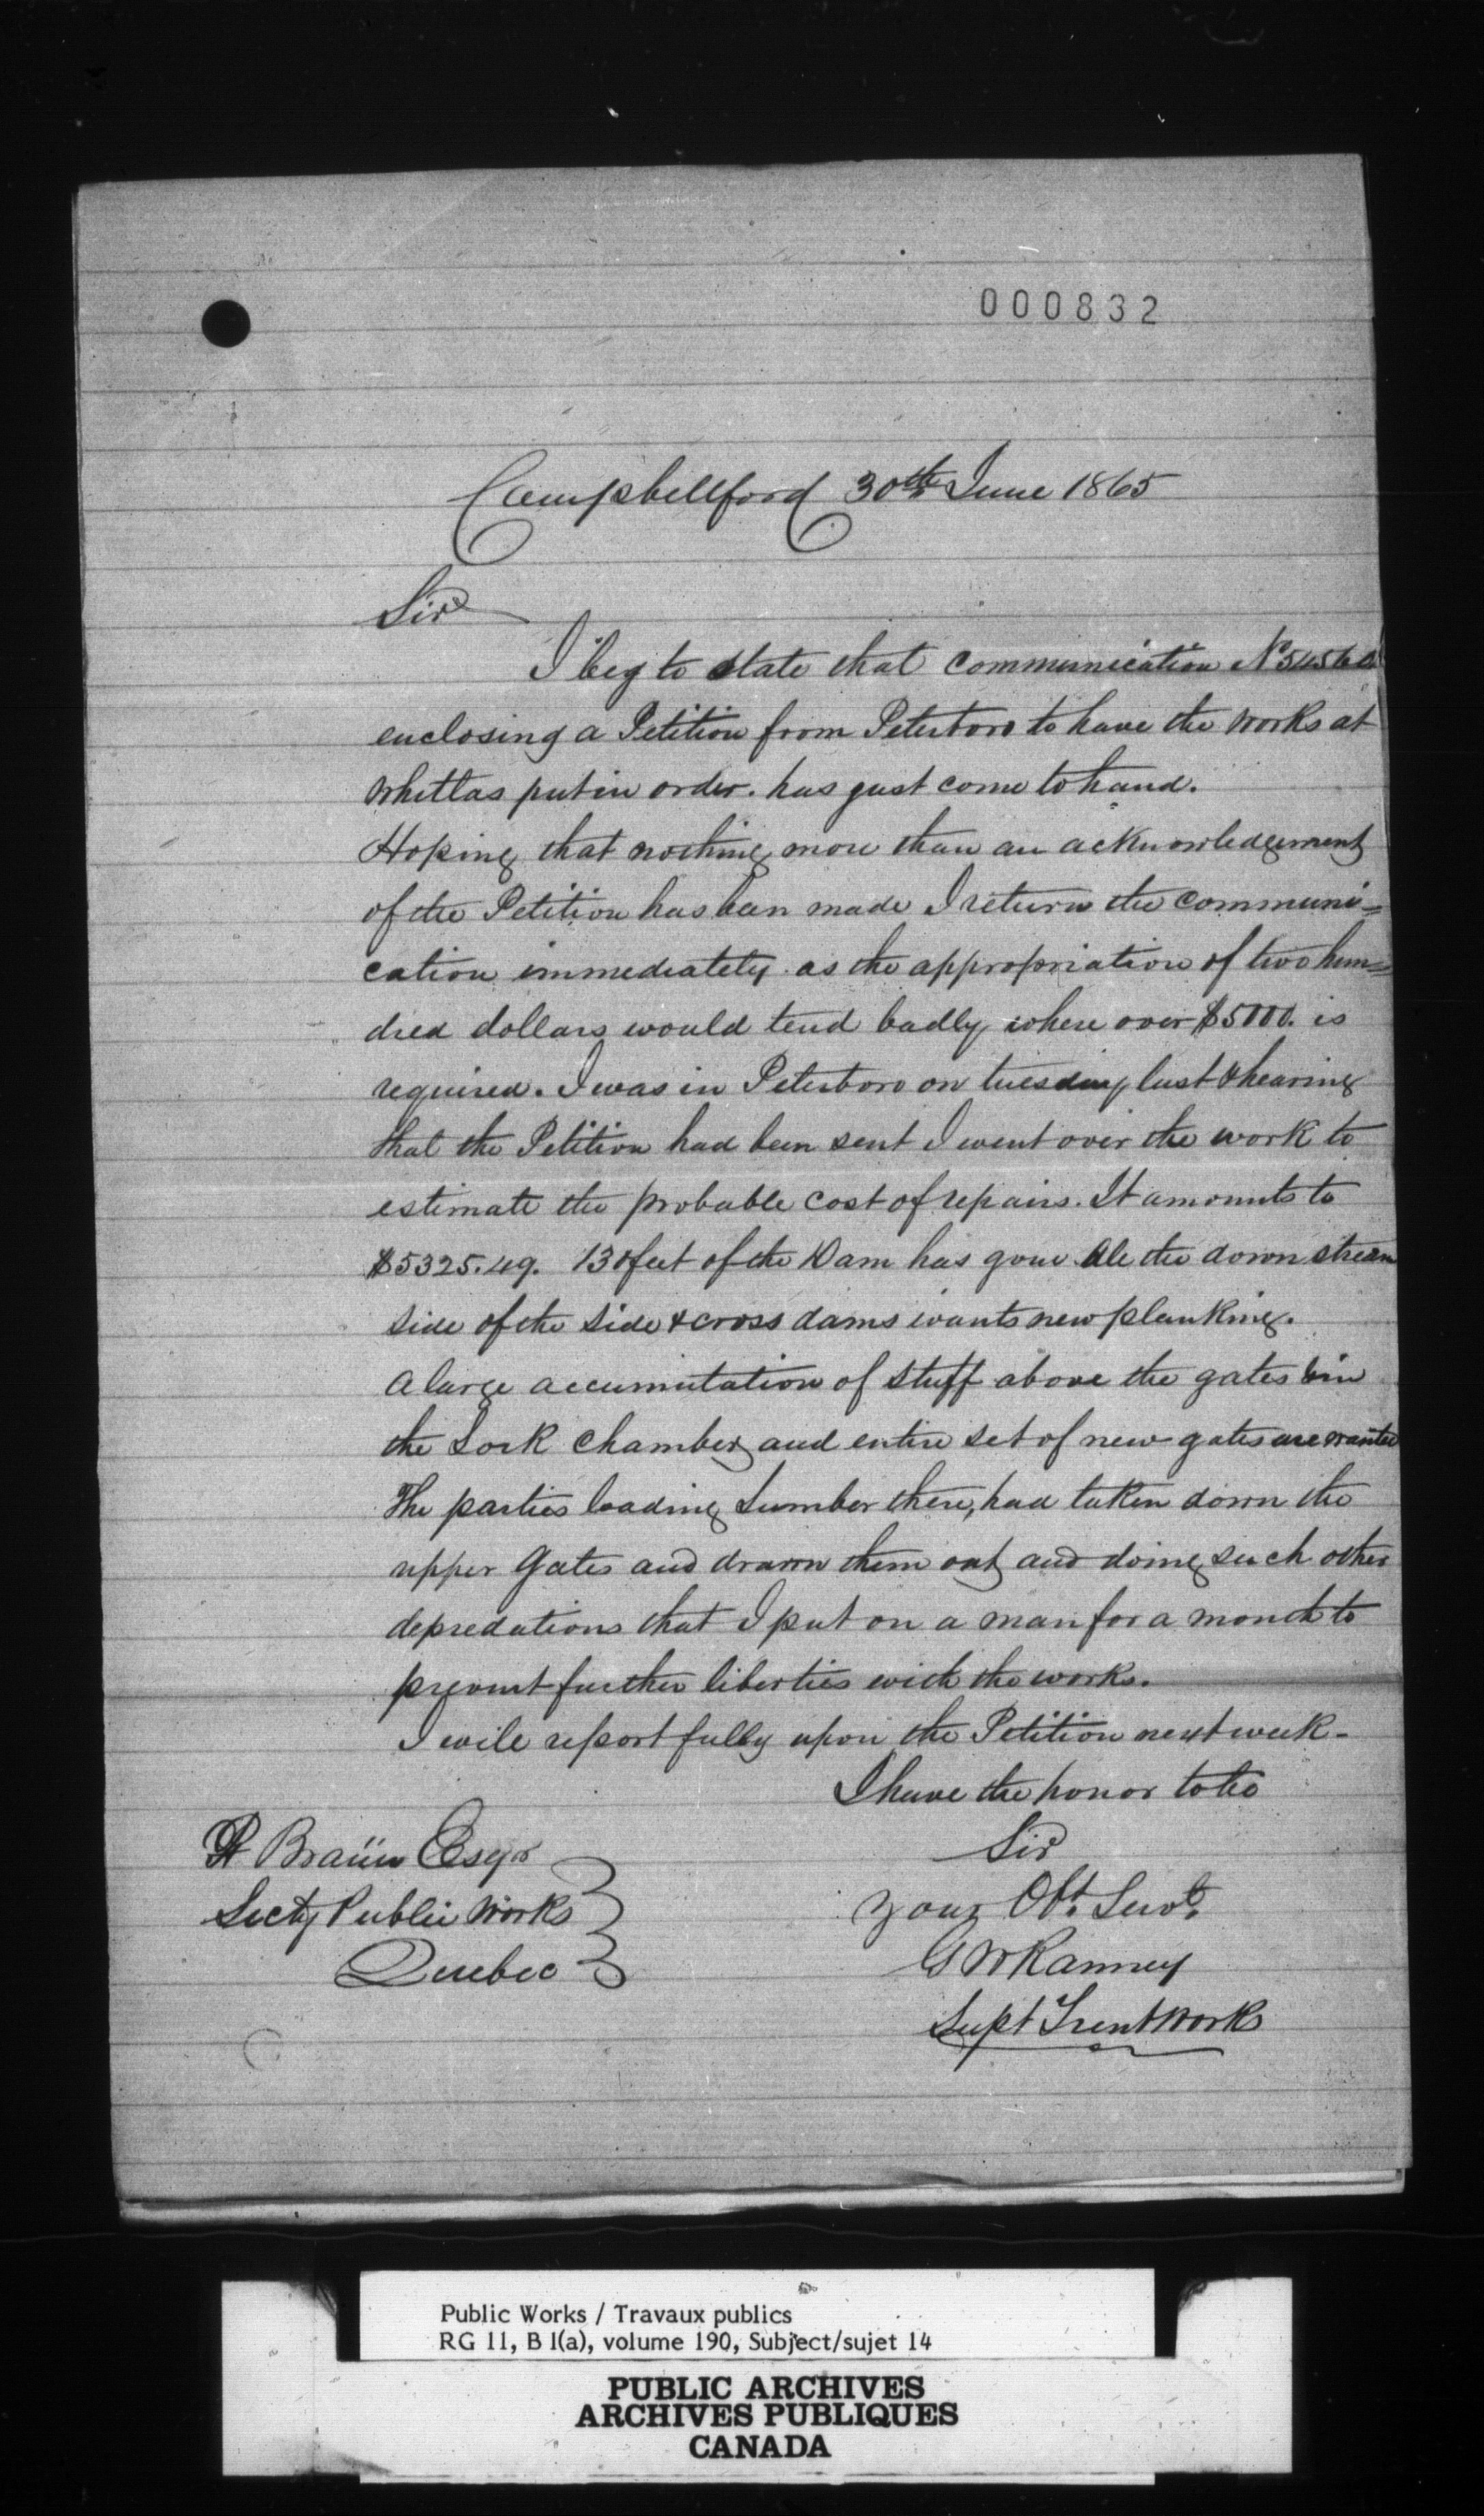 000832
Campbellford 30th June 1865
Sir
I beg to state that communication No
enclosing a Petition from Peterboro to have the works at
Whitlas put in order. has just come to hand.
Hoping that nothing more than an acknowledgement
of the Petition has been made I return the communi=
cation immediately as the appropriation of two hun=
dred dollars would tend badly where over $5000. is
required. I was in Peterboro on tuesday last & hearing
that the Petition had been sent I went over the work to
estimate the probable cost of repairs. It amounts to
$5325.49. 130 feet of the Dam has gone All the down stream
side of the side & cross dams wants new planking.
A large accumulation of stuff above the gates & in
the Lock chamber and entire set of new gates are wanted
The parties loading Lumber there, had taken down the
upper Gates and drawn them out and doing such other
depredations that I put on a man for a month to
prevent further liberties with the works.
I will report fully upon the Petition next week -
I have the honor to be
Sir
Your Obt. Servt.
G W Ranney
Supt Trent Works
Braün Esqr
Secty Public Works
Quebec
Public Works / Travaux publics
RG 11, B 1(a), volume 190, Subject/sujet 14
PUBLIC ARCHIVES
ARCHIVES PUBLIQUES
CANADA